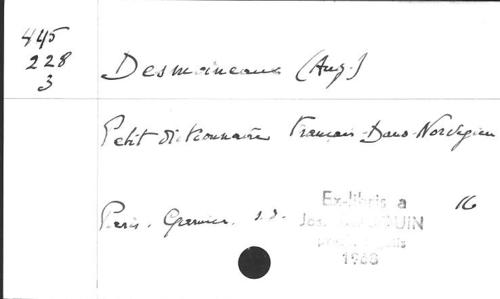 445
228
3
Desmoineaux (Aug.)
Petit dictionnaire Français-Dano-Norvégien
Paris. Garnier. s.d. 16
Ex-libris a
1968